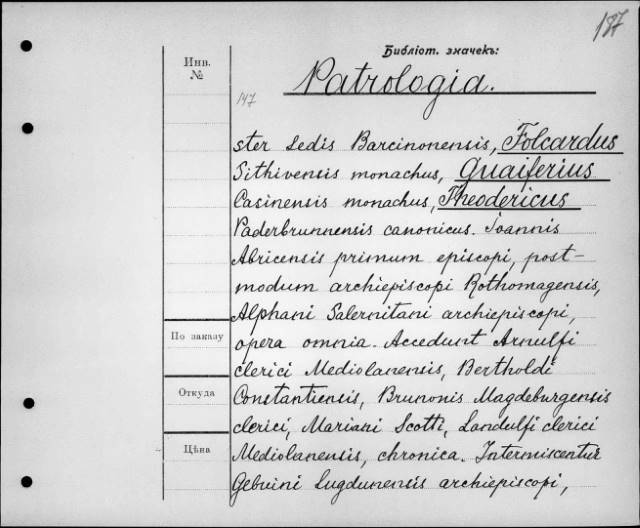 187
Библіот. значекъ:
Инв.
№
Patrologia.
147
ster Sedis Barcinonensis, Folcardus
Sithivensis monachus, Guaiferius
Casinensis monachus, Theodericus
Paderbrunnensis canonicus. Joannis
Abricensis primum episcopi, post-
modum archiepiscopi Rothomagensis,
Alphani Salernitani archiepiscopi,
По заказу
opera omnia. Accedunt Arnulfi
clerici Mediolanensis, Bertholdi
Откуда
Constantiensis, Brunonis Magdeburgensis
clerici, Mariani Scotti, Landulfi clerici
Цѣна
Mediolanensis, chronica. Intermiscentur
Gebuini Lugdunensis archiepiscopi,